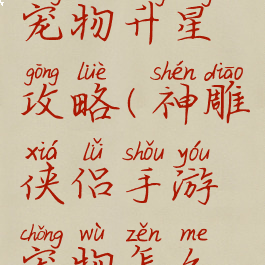 宠物升星
gōng lüè shén diāo
攻略(神雕
xiá lǚ shǒu yóu
侠侣手游
chǒng wù zěn me
宠物怎么